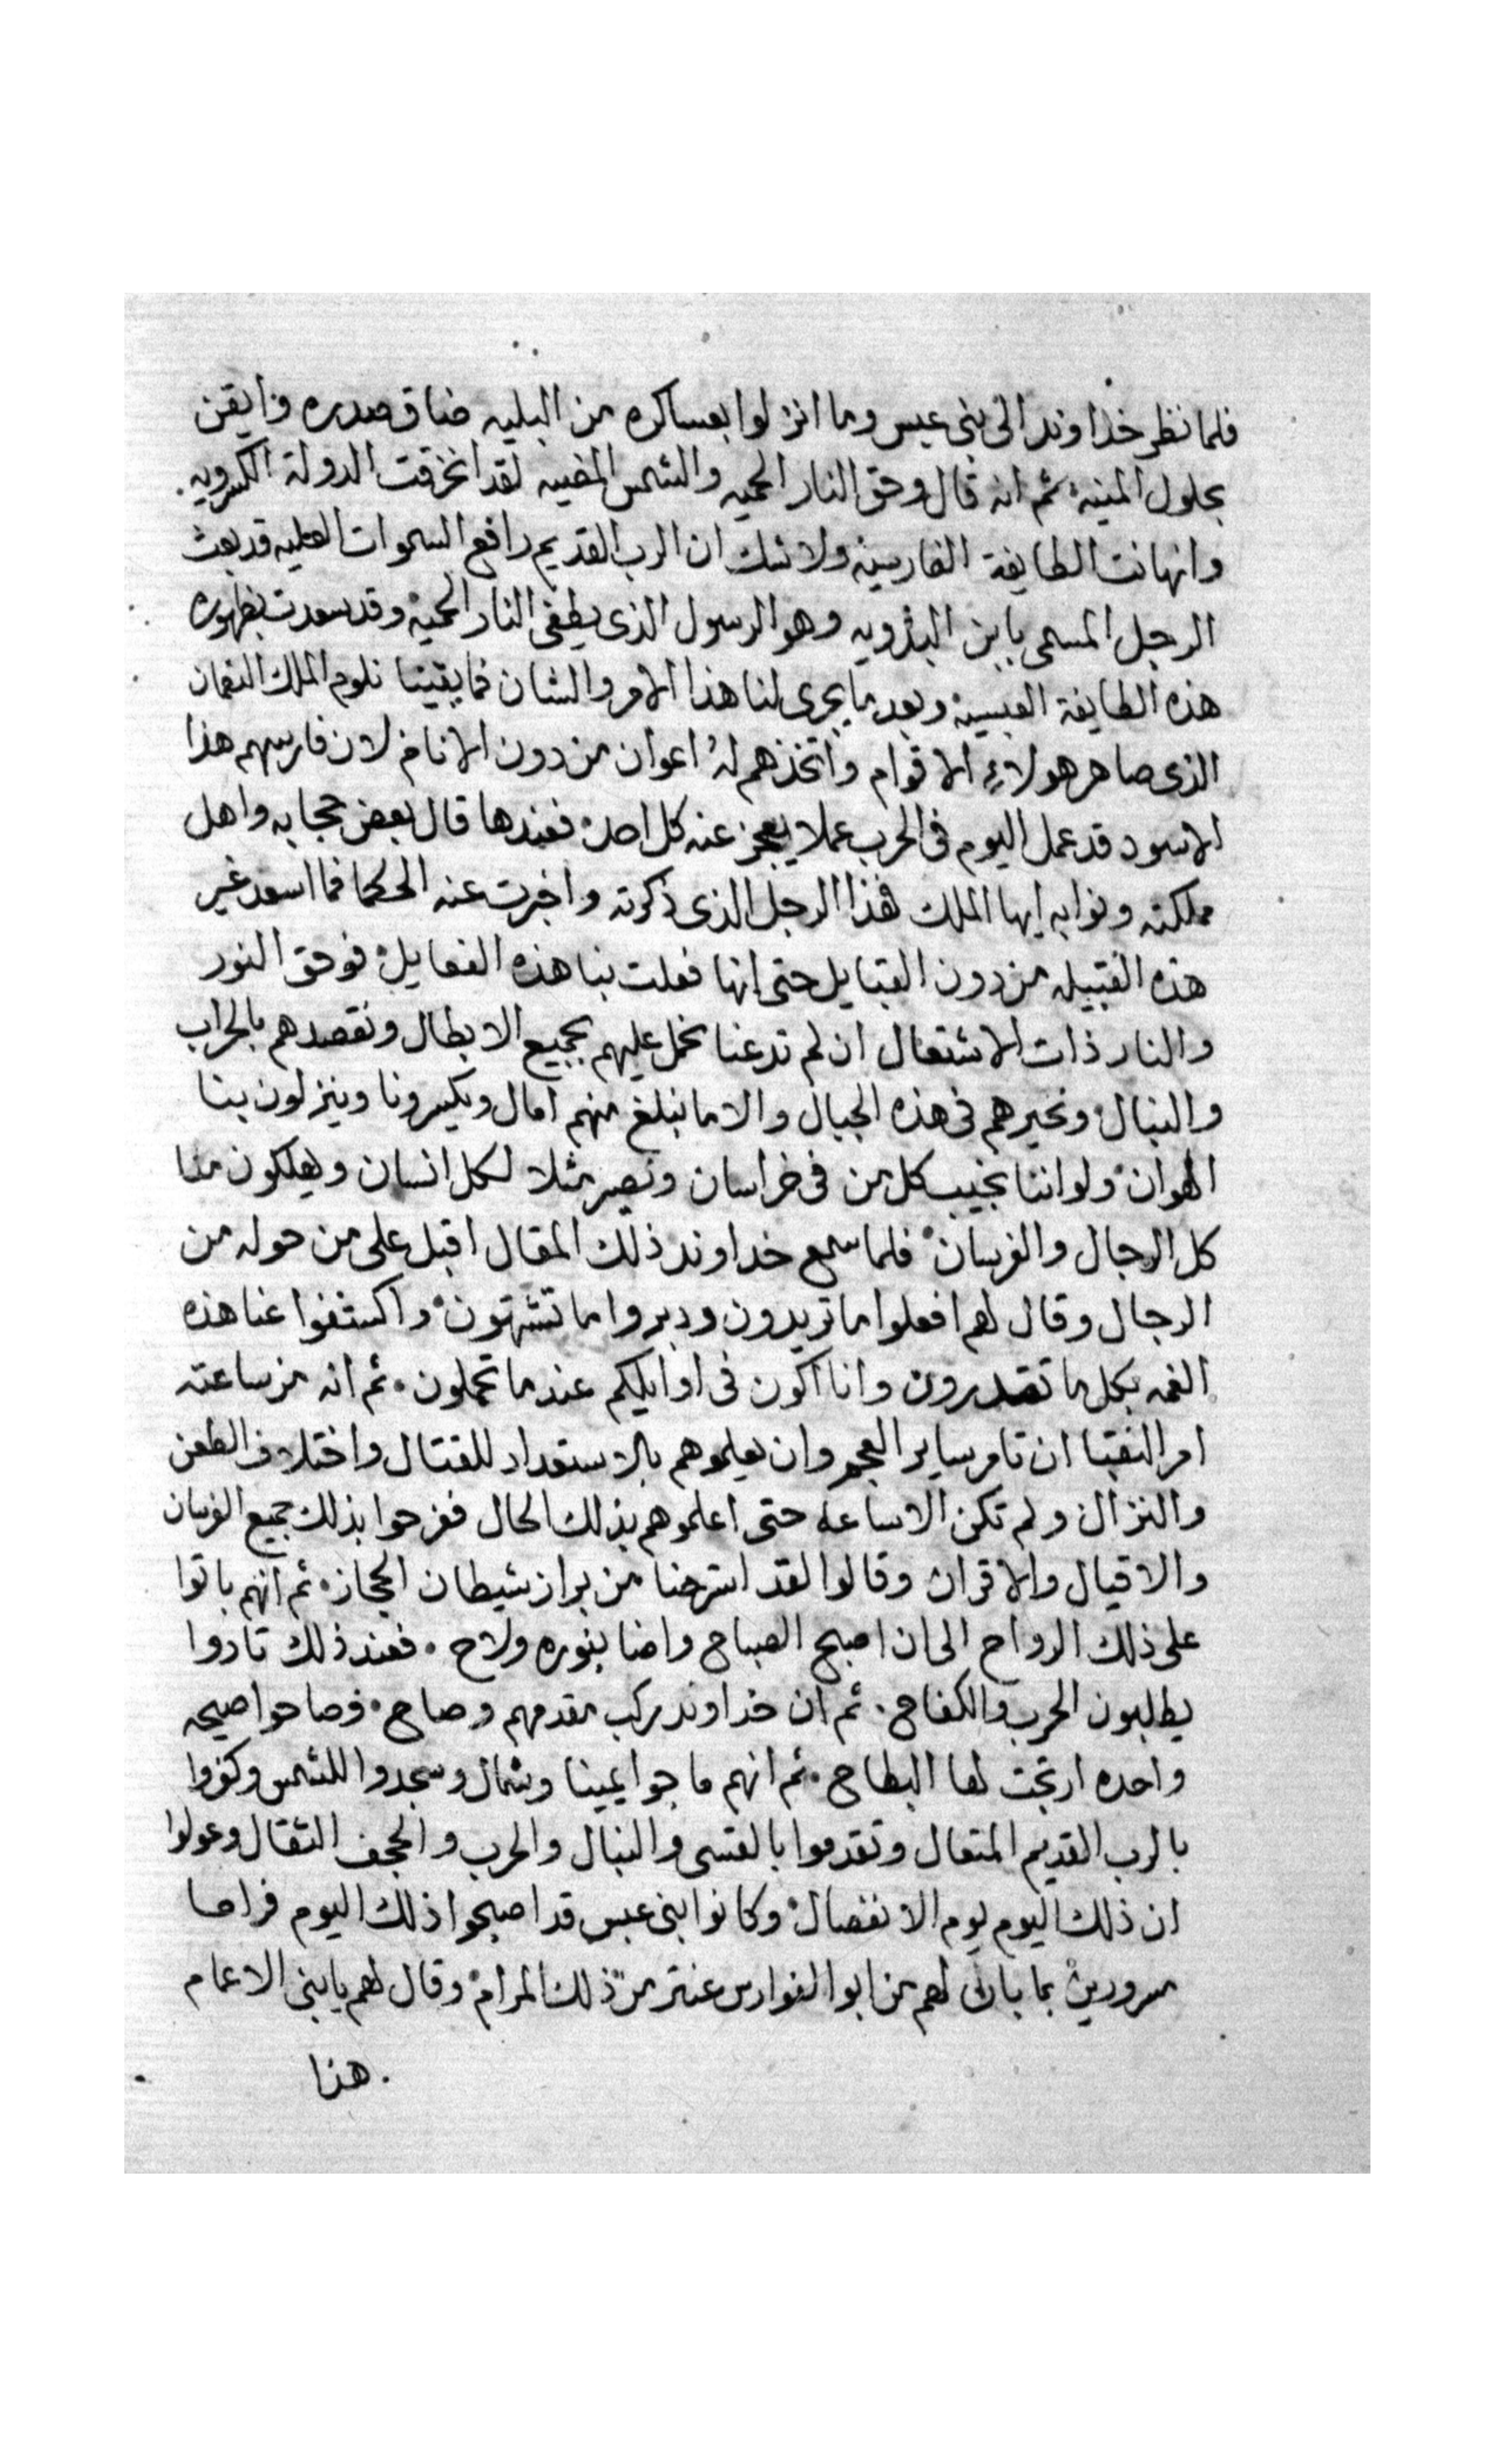 فلما نظر خداوند الى بنى عبس وما انزلوا بعساكره من البليه ضاق صدره وايقن
بحلول المنيه ثم انه قال وحق النار الحميه والشمس المضيه لقد انخرقت الدولة الكسرويه
وانهانت الطايفة الفارسيه ولا شك ان الرب القديم رافع السموات العليه قد بعث
الرجل المسمى بابن البدويه وهو الرسول الذى يطفى النار الحميه وقد سعدت بظهوره
هذه الطايفة العبسيه وبعد ما يجرى لنا هذا الامر والشان فما بقينا نلوم الملك النعمان
الذى صاهر هولاء الاقوام واتخذهم له اعوان من دون الانام لان فارسهم هذا
الاسود قد عمل اليوم فى الحرب عملا يعجز عنه كل احد فعندها قال بعض حجابه واهل
مملكته ونوابه ايها الملك هذا الرجل الذى ذكرته واخبرت عنه الحكما فما اسعد غير
هذه القبيله من دون القبايل حتى انها فعلت بنا هذه الفعايل فوحق النور
والنار ذات الاشتعال ان لم تدعنا نحمل عليهم بجميع الابطال ونقصدهم بالحراب
والنبال ونحيرهم فى هذه الجبال والا ما نبلغ منهم امال ويكسرونا وينزلون بنا
الهوان ولو اننا نجيب كل من فى خراسان ونصير مثلا لكل انسان ويهلكون منا
كل الرجال والفرسان فلما سمع خداوند ذلك المقال اقبل على من حوله من
الرجال وقال لهم افعلوا ما تريدون ودبروا ما تشتهون واكشفوا عنا هذه
الغمه بكل ما تقدرون وانا اكون فى اوايلكم عندما تحملون ثم انه من ساعته
امر النقبا ان تامر ساير العجم وان يعلموهم بالاستعداد للقتال واختلاف الطعن
والنزال ولم تكن الا ساعه حتى اعلموهم بذلك الحال ففرحوا بذلك جميع الفرسان
والاقيال والاقران وقالوا لقد استرحنا من براز شيطان الحجاز ثم انهم باتوا
على ذلك الرواح الى ان اصبح الصباح واضا بنوره ولاح فعند ذلك تادوا
يطلبون الحرب والكفاح ثم ان خداوند ركب مقدمهم وصاح فصاحوا صيحه
واحده ارتجت لها البطاح ثم انهم ماجوا يمينا وشمال وسجدوا للشمس وكفروا
بالرب القديم المتعال وتقدموا بالقسى والنبال والحرب والحجف الثقال وعولوا
ان ذلك اليوم يوم الانفصال وكانوا بنى عبس قد اصبحوا ذلك اليوم فراحا
مسرورين بما بان لهم من ابو الفوارس عنتر من ذلك المرام وقال لهم يا بنى الاعمام
هذا